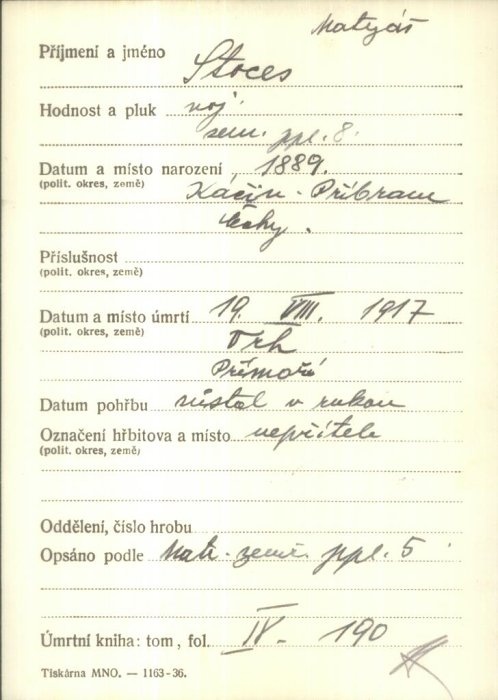 Matyáš
Příjmení a jméno Stoces
Hodnost a pluk voj.
zem. ppl. 8.
Datum a místo narození 1889.
(polit. okres, země) Káčin - Příbram
Čechy.
Příslušnost
(polit. okres, země)
Datum a místo úmrtí 19. VIII. 1917
(polit. okres, země) Vrh
Přímoří
Datum pohřbu zůstal v rukou
Označení hřbitova a místo nepřítele
(polit. okres, země)
Oddělení, číslo hrobu
Opsáno podle Matr. zemř. ppl. 5
Úmrtní kniha: tom, fol. IV. 190
Tiskárna MNO. — 1163-36.